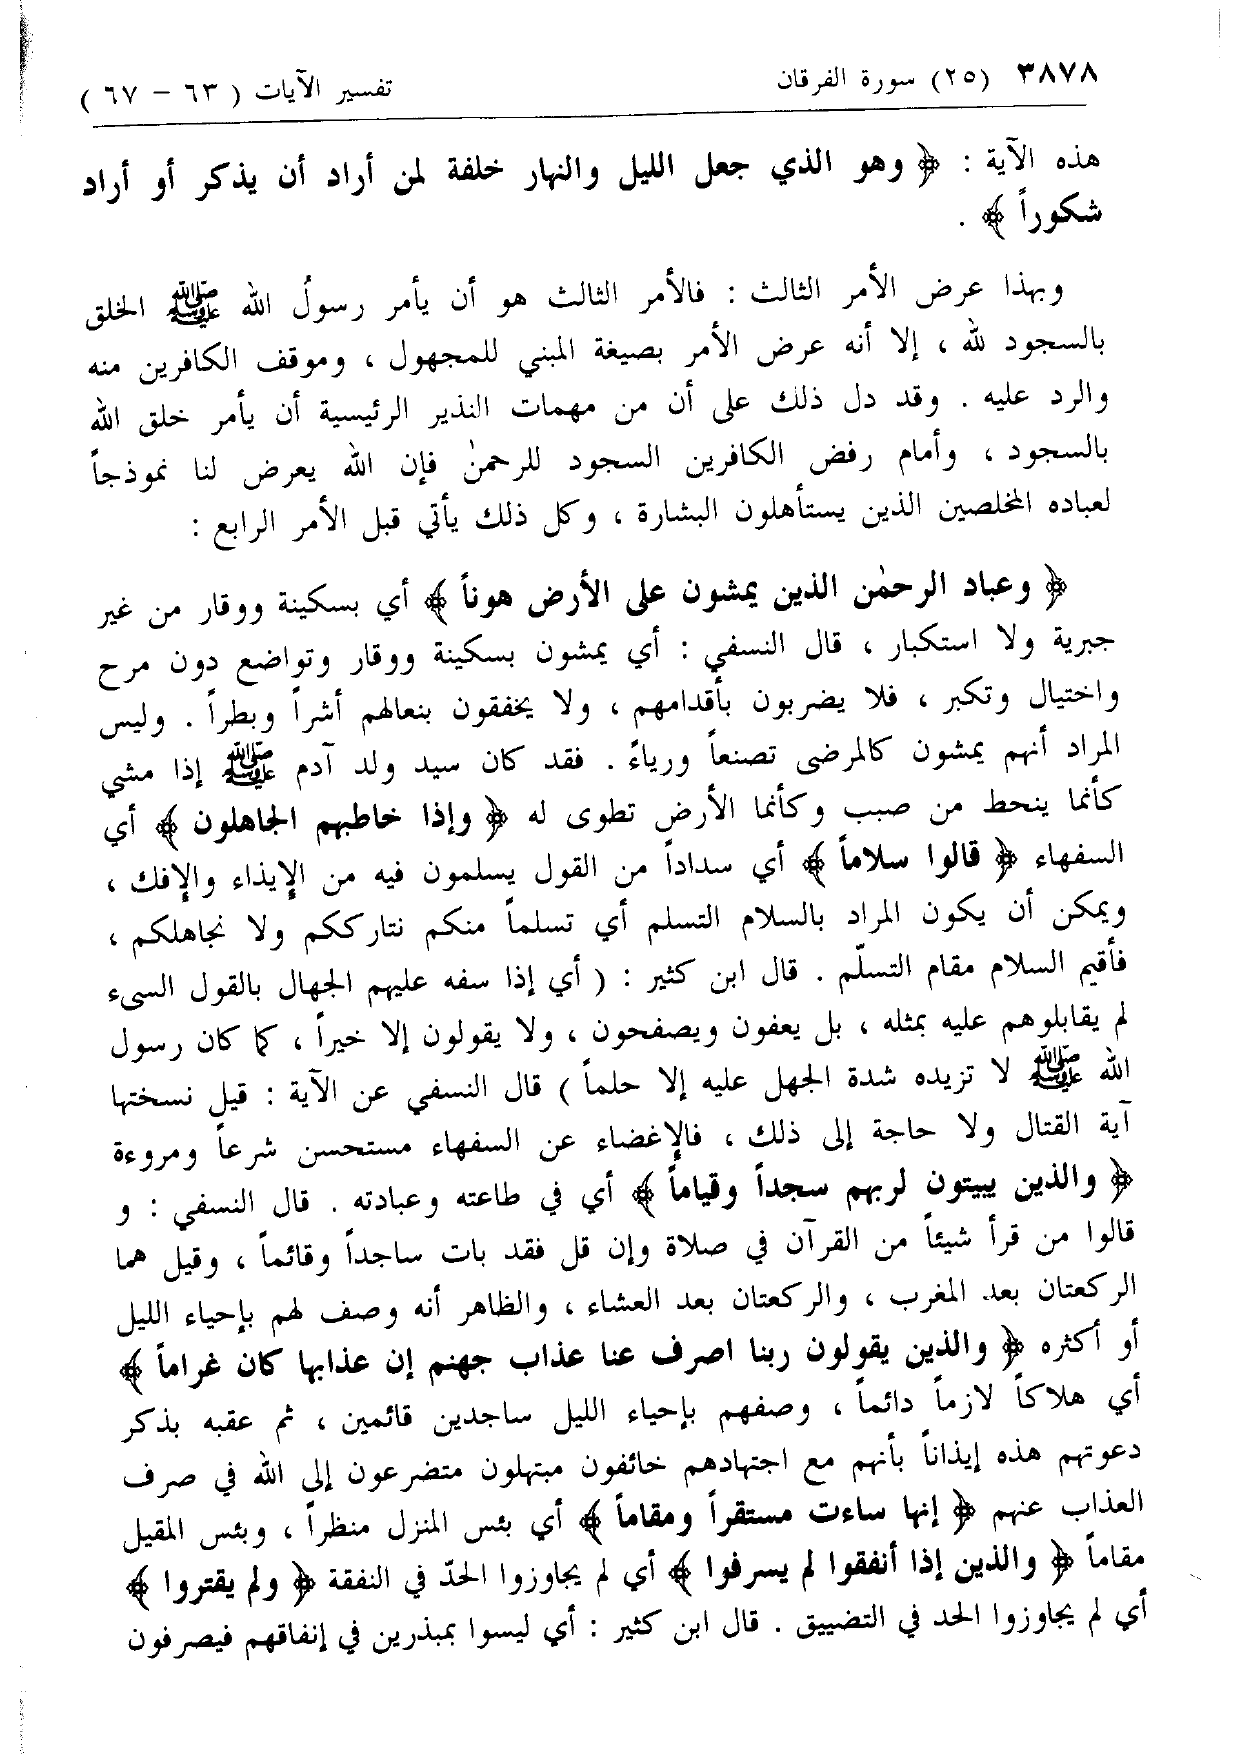 ٣٨٧٨ (٢٥) سورة الفرقان تفسير الآيات ( ٦٣ – ٦٧ )
هذه الآية : ﴿ وهو الذي جعل الليل والنهار خلفة لمن أراد أن يذكر أو أراد
شكوراً ﴾ .
وبهذا عرض الأمر الثالث : فالأمر الثالث هو أن يأمر رسولُ الله ﷺ الخلق
بالسجود لله ، إلا أنه عرض الأمر بصيغة المبني للمجهول ، وموقف الكافرين منه
والرد عليه . وقد دل ذلك على أن من مهمات النذير الرئيسية أن يأمر خلق الله
بالسجود ، وأمام رفض الكافرين السجود للرحمٰن فإن الله يعرض لنا نموذجاً
لعباده المخلصين الذين يستأهلون البشارة ، وكل ذلك يأتي قبل الأمر الرابع :
﴿ وعباد الرحمٰن الذين يمشون على الأرض هوناً ﴾ أي بسكينة ووقار من غير
جبرية ولا استكبار ، قال النسفي : أي يمشون بسكينة ووقار وتواضع دون مرح
واختيال وتكبر ، فلا يضربون بأقدامهم ، ولا يخفقون بنعالهم أشراً وبطراً . وليس
المراد أنهم يمشون كالمرضى تصنعاً ورياءً . فقد كان سيد ولد آدم ﷺ إذا مشي
كأنما ينحط من صبب وكأنما الأرض تطوى له ﴿ وإذا خاطبهم الجاهلون ﴾ أي
السفهاء ﴿ قالوا سلاماً ﴾ أي سداداً من القول يسلمون فيه من الإيذاء والإفك ،
ويمكن أن يكون المراد بالسلام التسلم أي تسلماً منكم نتارككم ولا نجاهلكم ،
فأقيم السلام مقام التسلّم . قال ابن كثير : ( أي إذا سفه عليهم الجهال بالقول السيء
لم يقابلوهم عليه بمثله ، بل يعفون ويصفحون ، ولا يقولون إلا خيراً ، كما كان رسول
الله ﷺ لا تزيده شدة الجهل عليه إلا حلماً ) قال النسفي عن الآية : قيل نسختها
آية القتال ولا حاجة إلى ذلك ، فالإغضاء عن السفهاء مستحسن شرعاً ومروءة
﴿ والذين يبيتون لربهم سجداً وقياماً ﴾ أي في طاعته وعبادته . قال النسفي : و
قالوا من قرأ شيئاً من القرآن في صلاة وإن قل فقد بات ساجداً وقائماً ، وقيل هما
الركعتان بعد المغرب ، والركعتان بعد العشاء ، والظاهر أنه وصف لهم بإحياء الليل
أو أكثره ﴿ والذين يقولون ربنا اصرف عنا عذاب جهنم إن عذابها كان غراماً ﴾
أي هلاكاً لازماً دائماً ، وصفهم بإحياء الليل ساجدين قائمين ، ثم عقبه بذكر
دعوتهم هذه إيذاناً بأنهم مع اجتهادهم خائفون مبتهلون متضرعون إلى الله في صرف
العذاب عنهم ﴿ إنها ساءت مستقراً ومقاماً ﴾ أي بئس المنزل منظراً ، وبئس المقيل
مقاماً ﴿ والذين إذا أنفقوا لم يسرفوا ﴾ أي لم يجاوزوا الحدّ في النفقة ﴿ ولم يقتروا ﴾
أي لم يجاوزوا الحد في التضييق . قال ابن كثير : أي ليسوا بمبذرين في إنفاقهم فيصرفون